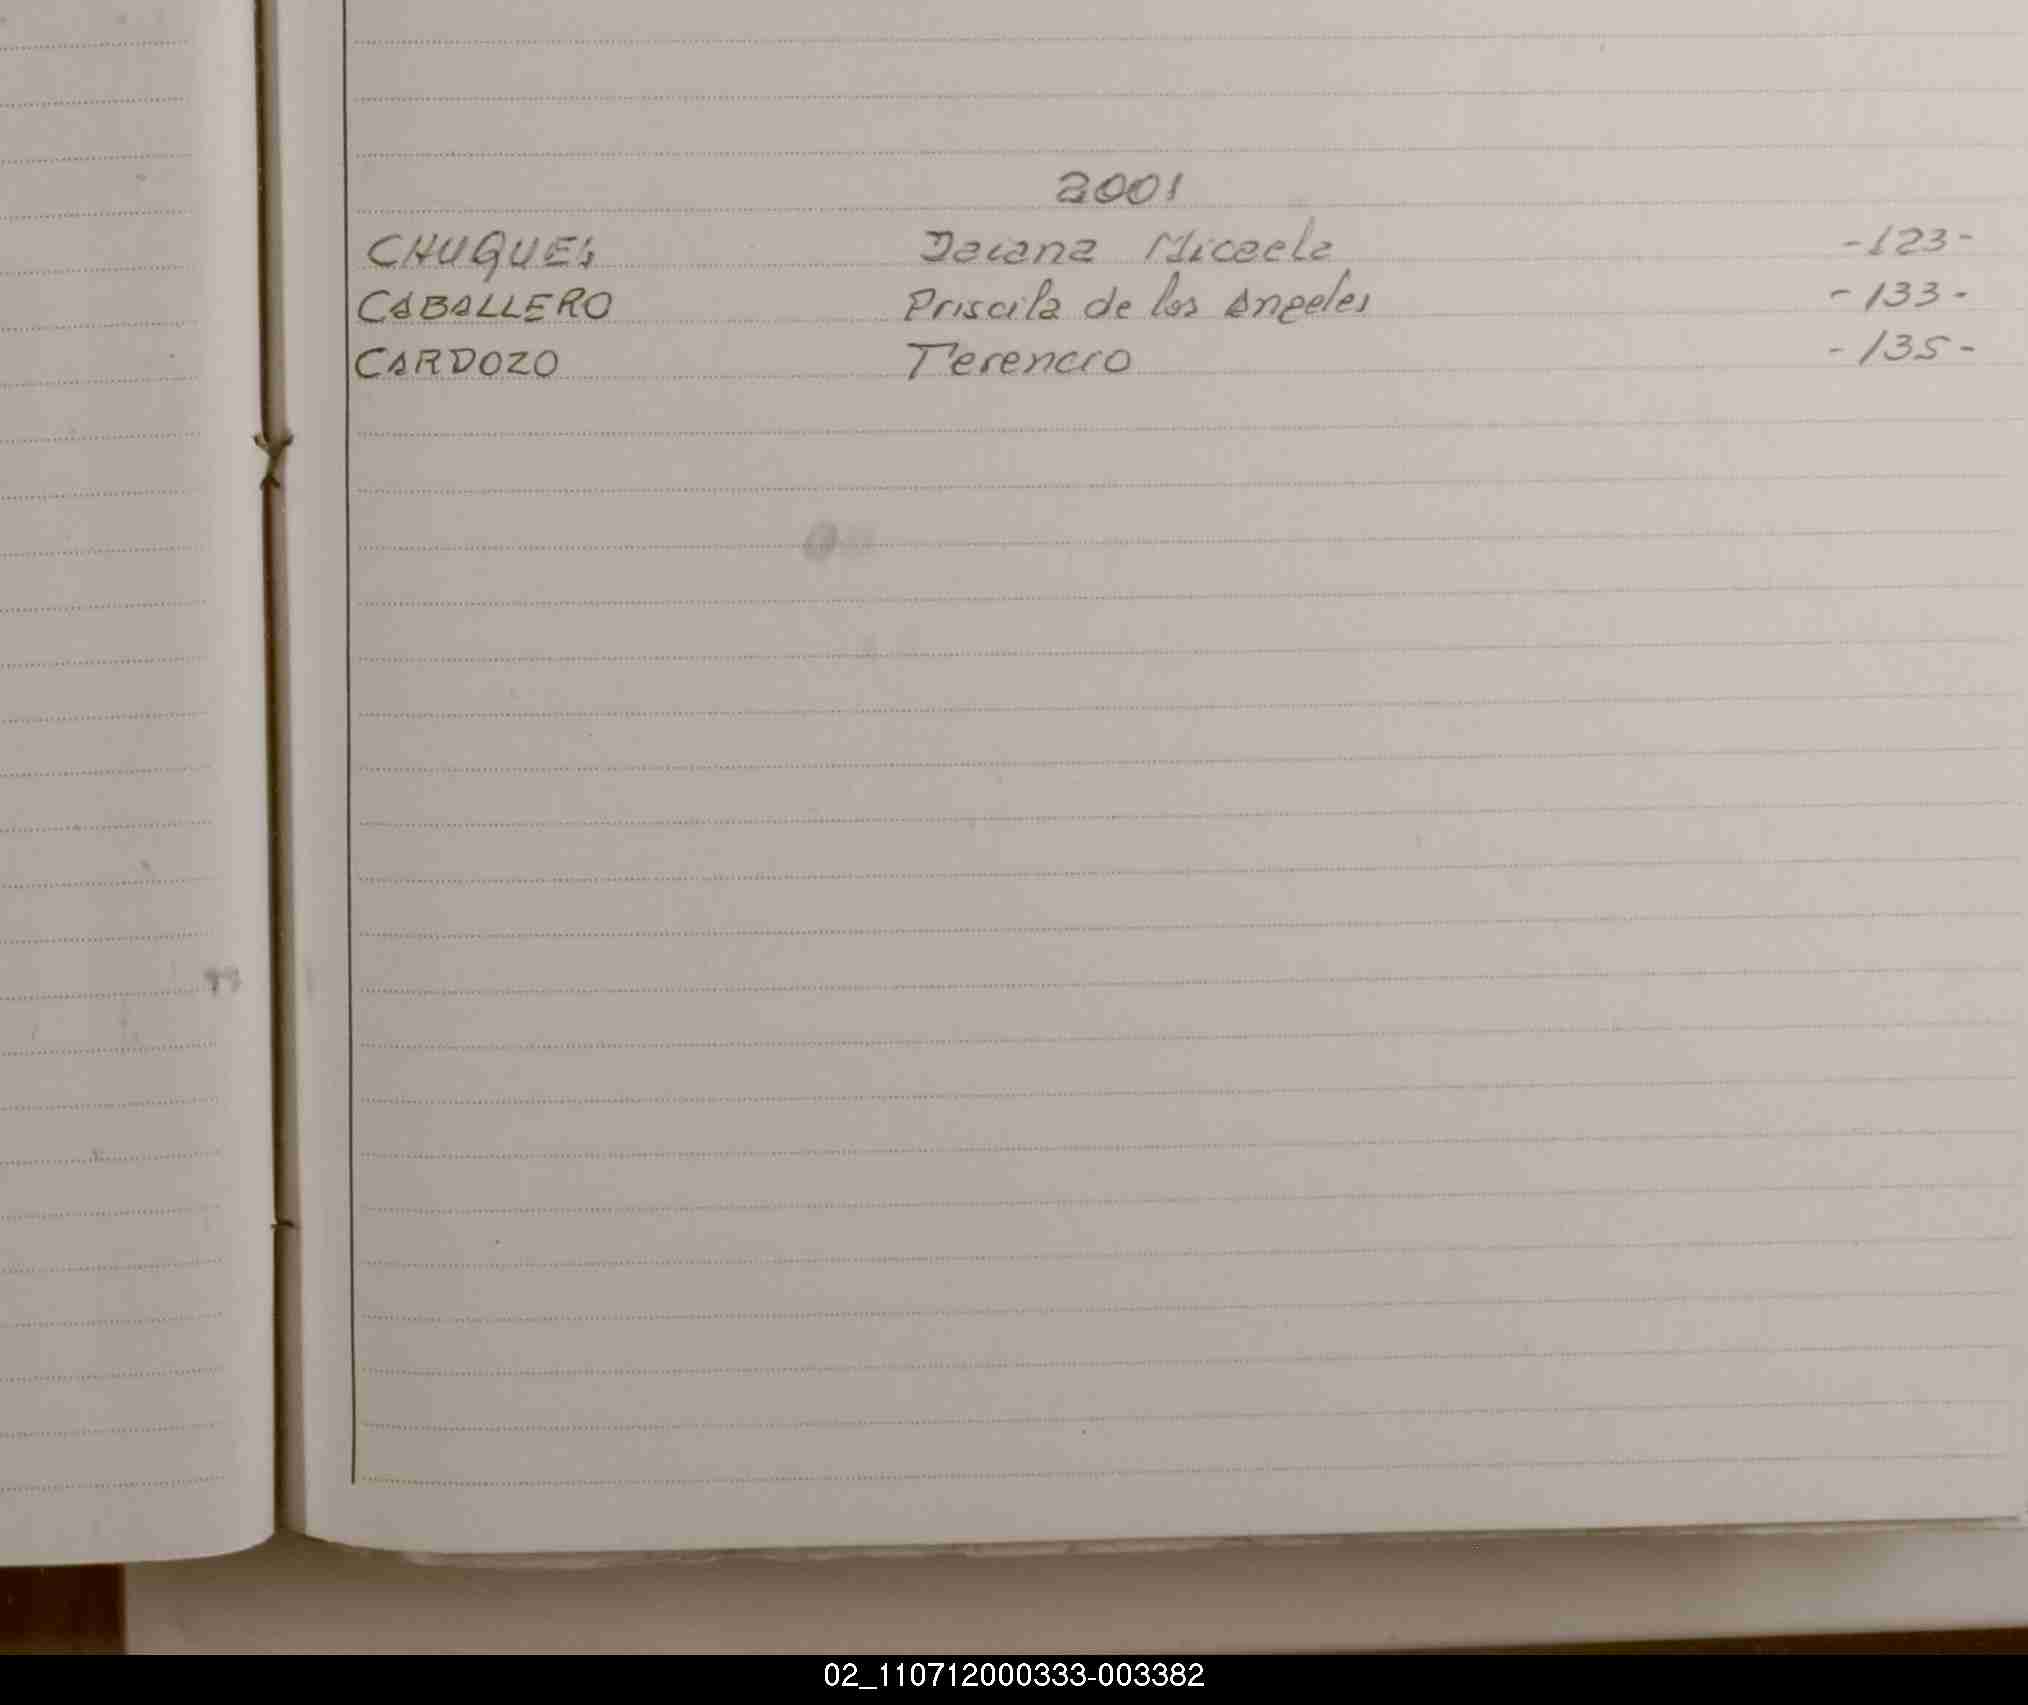 2001
CHUQUEL Daiana Micaela -123-
CABALLERO Priscila de los Angeles -133-
CARDOZO Terencio -135-
02_110712000333-003382